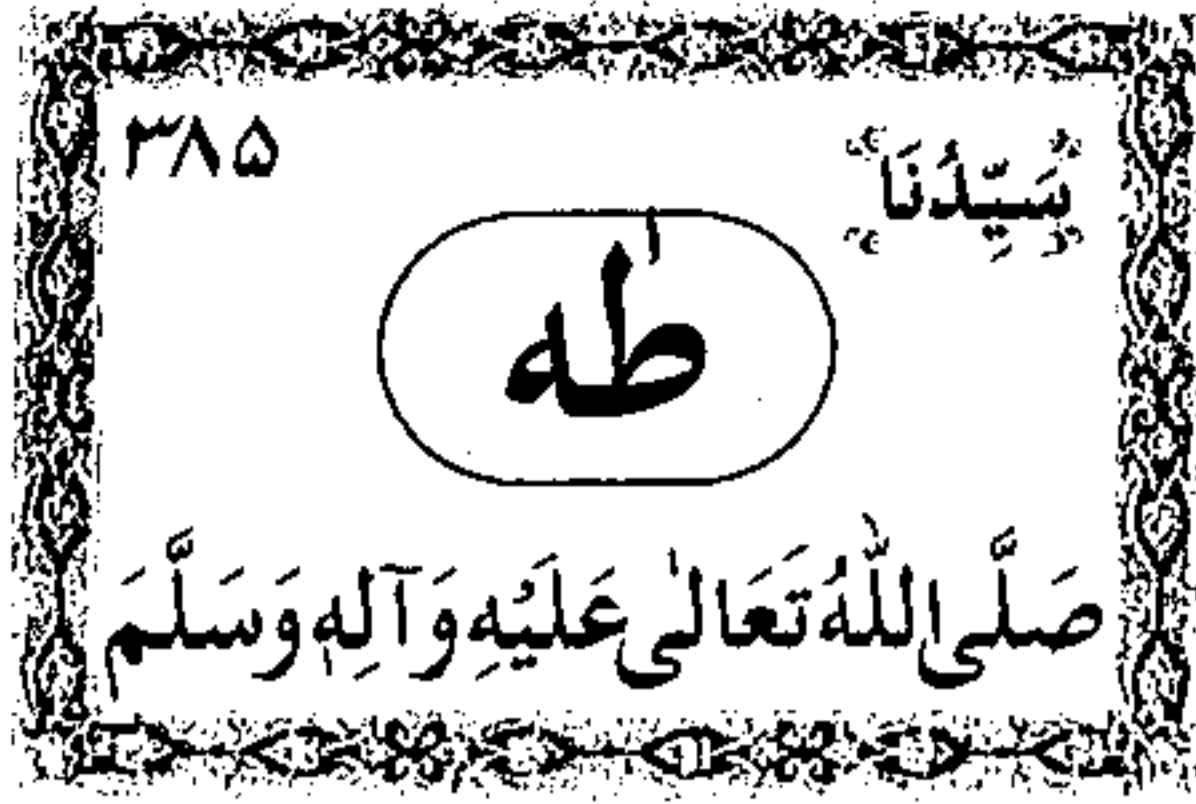 سَيِّدُنَا ۳۸۵
طٰهٰ
صَلَّى اللّٰهُ تَعَالٰى عَلَيْهِ وَآلِهٖ وَسَلَّمَ